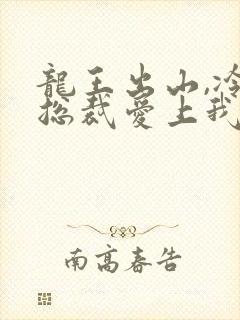 龍王出山,冷
總裁愛上我
南高春告